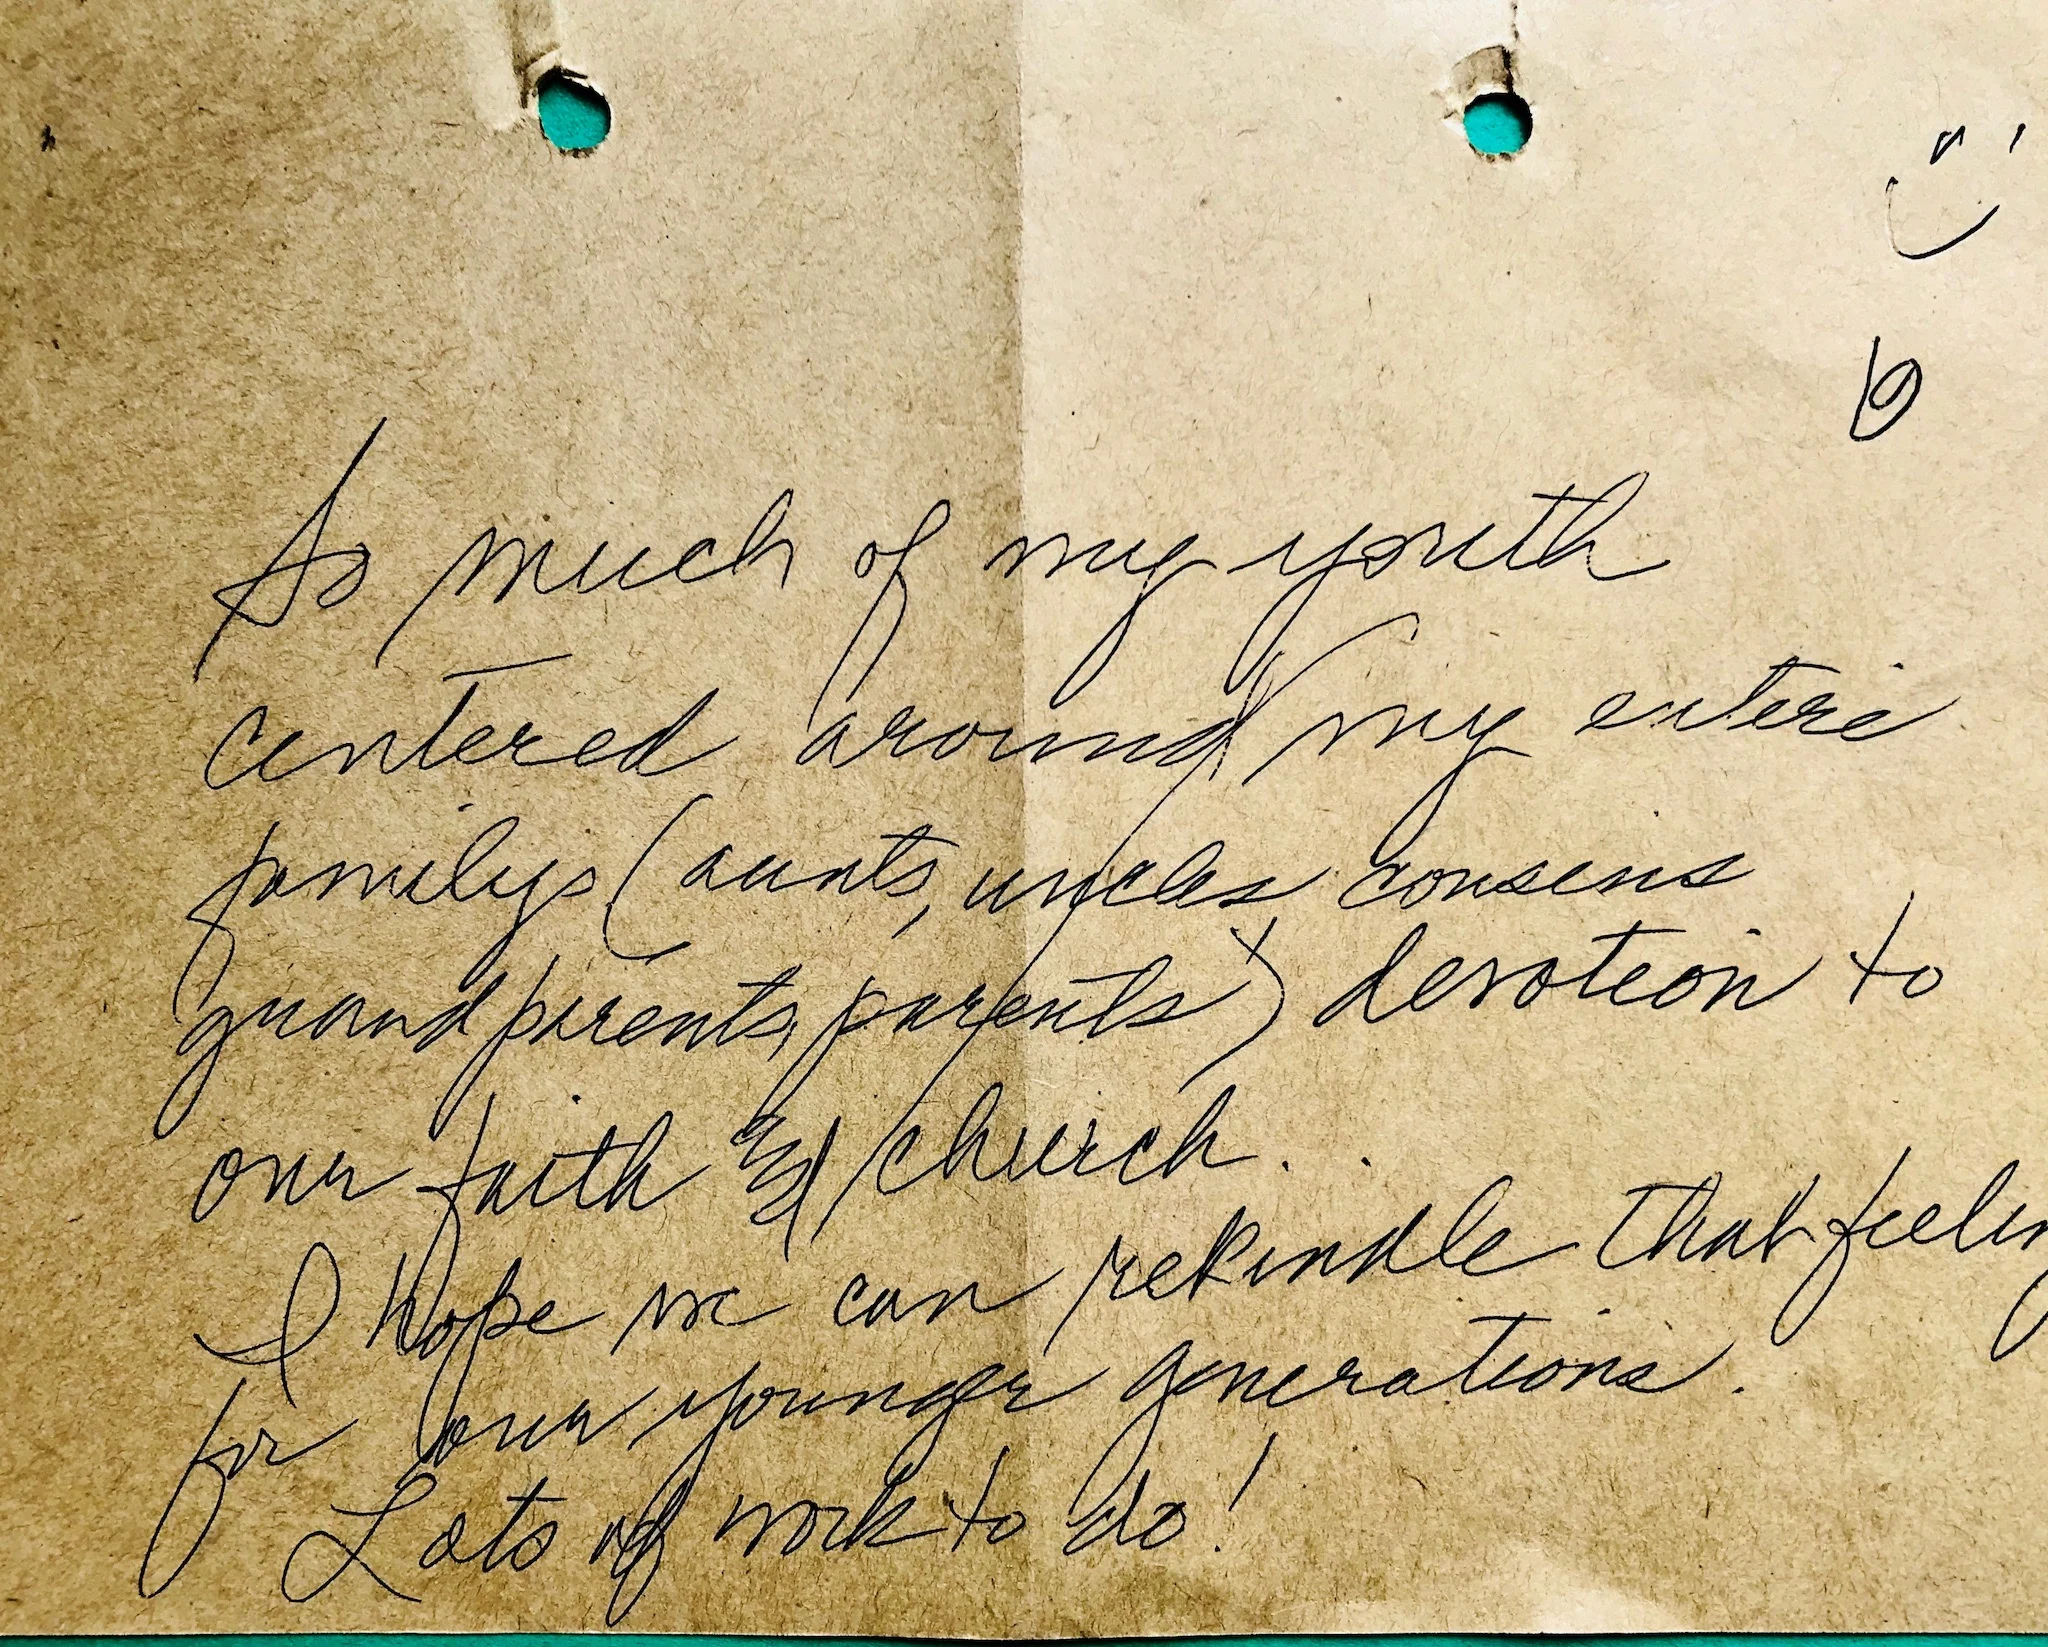 So much of my youth
centered around my entire
familys (aunts, uncles cousins
grandparents, parents) devotion to
our faith & church. .
I hope we can rekindle that feeling
for our younger generations.
Lots of work to do!